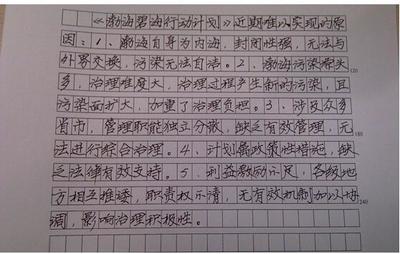 《渤海碧海行动计划》近期难以实现的原
因：1、渤海自身为内海，封闭性强，无法与
外界交换，污染无法自洁。2、渤海污染源头
120
多，治理难度大，治理过程产生新的污染，且
污染面扩大，加重了治理负担。3、涉及众多
省市，管理职能独立分散，缺乏有效管理，无
180
法进行综合治理。4、计划需政策性措施，缺
乏法律有效支持。5、利益激励不足，各级地
方相互推诿，职责权不清，无有效机制加以协
240
调，影响治理积极性。